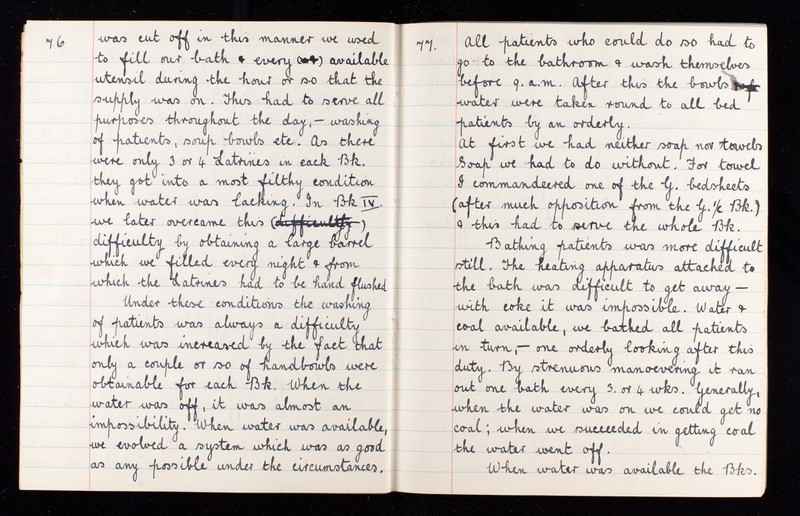 76
was cut off in this manner we used
to fill our bath & every available
utensil during the hour or so that the
supply was on. This had to serve all
purposes throughout the day, – washing
of patients, soup bowls etc. As there
were only 3 or 4 Latrines in each Bk.
they got into a most filthy condition
when water was lacking. In Bk IV.
we later overcame this (difficultly)
difficulty by obtaining a large barrel
which we filled every night & from
which the Latrines had to be hand flushed
Under these conditions the washing
of patients was always a difficulty
which was increased by the fact that
only a couple or so of handbowls were
obtainable for each Bk. When the
water was off, it was almost an
impossibility. When water was available,
we evolved a system which was as good
as any possible under the circumstances.
77.
All patients who could do so had to
go to the bathroom & wash themselves
before 9. a.m. After this the bowls of
water were taken round to all bed
patients by an orderly.
At first we had neither soap nor towels
Soap we had to do without. For towel
I commandeered one of the G. bedsheets
(after much opposition from the G. i/c Bk.)
& this had to serve the whole Bk.
Bathing patients was more difficult
still. The heating apparatus attached to
the bath was difficult to get away –
with coke it was impossible. Water &
coal available, we bathed all patients
in turn, – one orderly looking after this
duty. By strenuous manoevering it ran
out one bath every 3. or 4 wks. Generally,
when the water was on we could get no
coal; when we succeeded in getting coal
the water went off.
When water was available the Bks.